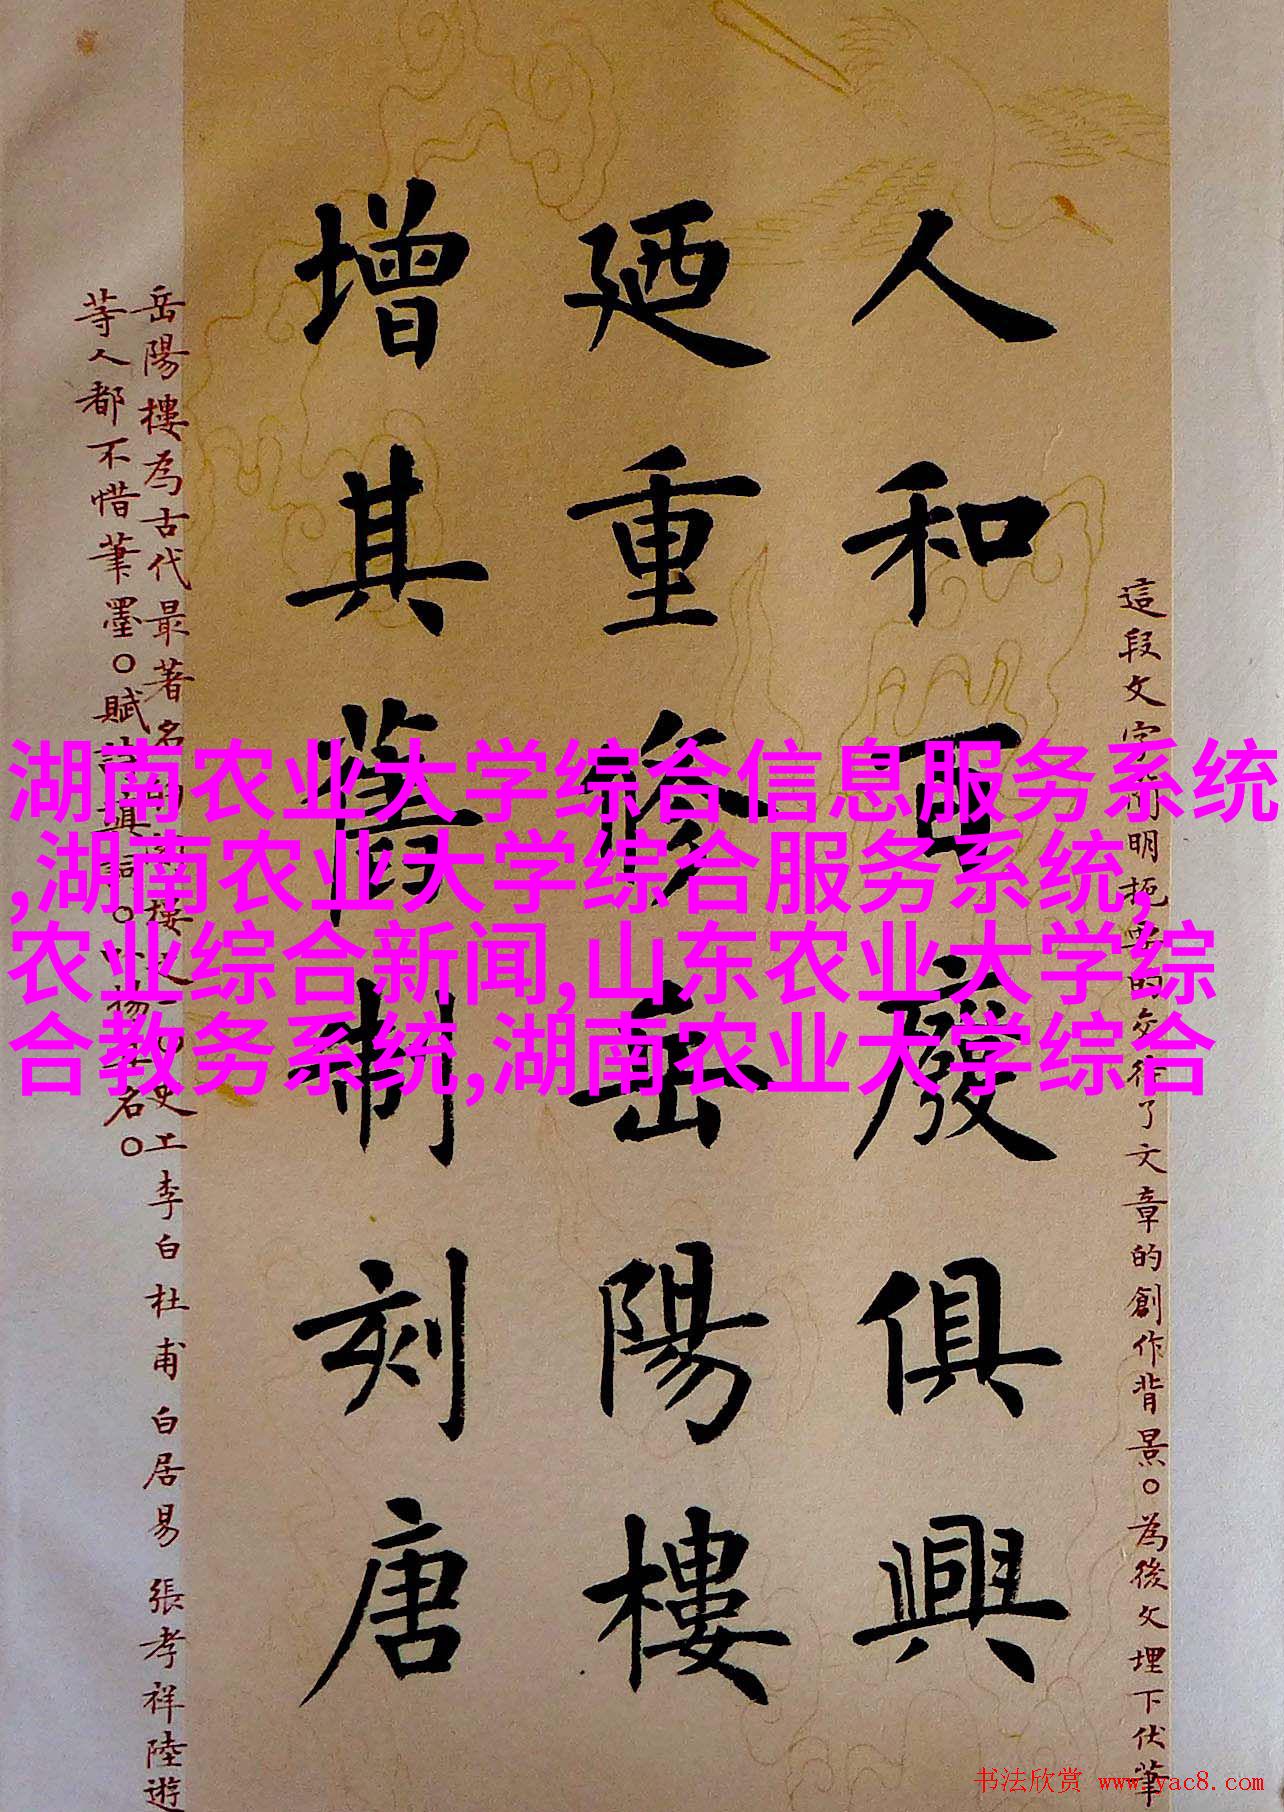 這段文字明扼要的交待了文章的創作背景。為後文埋下伏筆
人和百廢俱興
廼重修岳陽樓
增其舊制刻唐
岳陽樓為古代最著名的樓之一。史上李白杜甫白居易張孝祥陸遊
等人都不惜筆墨。賦詩填詞。揚其名。
湖南农业大学综合信息服务系统
,湖南农业大学综合服务系统,
农业综合新闻,山东农业大学综
合教务系统,湖南农业大学综合
书法欣赏 www.yac8.com